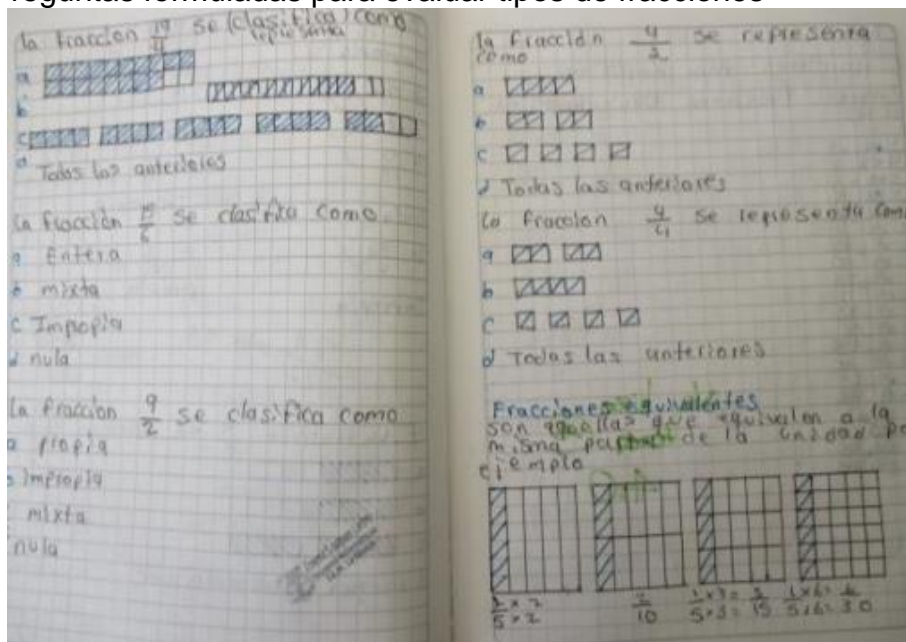 reguntas formuladas para evaluar tipos de fracciones
la fracción se (clasifica) como
representa
a
b
c
d Todas las anteriores
la fracción se clasifica como
a Entera
b mixta
c Impopia
d nula
la fracción 9/2 se clasifica como
a propia
b impropia
mixta
nula
la fracción 4/2 se representa
como
a
b
c
d Todas las anteriores
la fracción 4/4 se representa com
a
b
c
d Todas las anteriores
Fracciones equivalentes
son aquellas que equivalen a la
misma parte de la unidad po
ejemplo
1/5 × 2/2
2/10
1/5 × 3/3 = 3/15
1/5 × 6/6 = 6/30